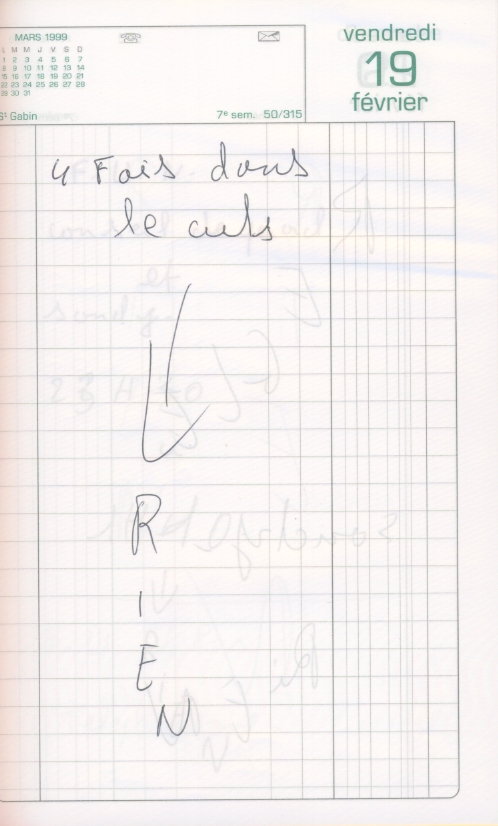 MARS 1999
L M M J V S D
1 2 3 4 5 6 7
8 9 10 11 12 13 14
15 16 17 18 19 20 21
22 23 24 25 26 27 28
29 30 31
St Gabin
7e sem. 50/315
vendredi
19
février
4 Fois dans
le culs
R
I
E
N